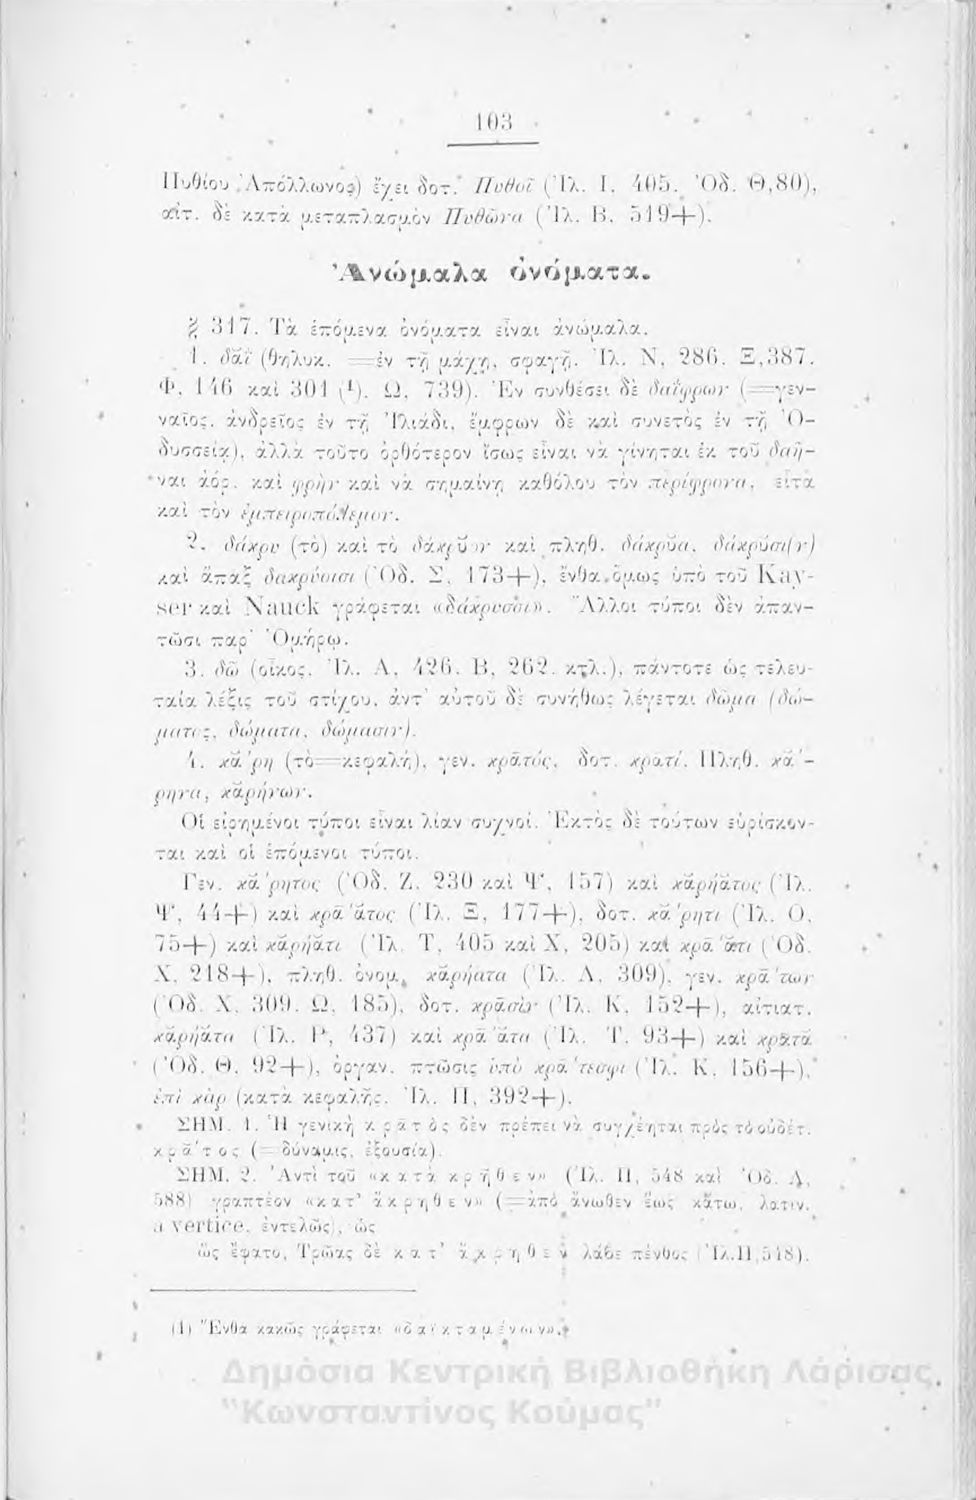 103
Πυθίου Ἀπόλλωνος) ἔχει δοτ. Πυθοῖ (Ἰλ. Ι, 405. Ὀδ. Θ,80),
αἰτ. δὲ κατὰ μεταπλασμὸν Πυθῶνα (Ἰλ. Β. 519+).
Ἀνώμαλα ὀνόματα.
§ 317. Τὰ ἑπόμενα ὀνόματα εἶναι ἀνώμαλα.
1. δαῒ (θηλυκ. =ἐν τῇ μάχῃ, σφαγῇ. Ἰλ. Ν, 286. Ξ,387.
Φ, 146 καὶ 301 (¹). Ω, 739). Ἐν συνθέσει δὲ δαΐφρων (=γεν-
ναῖος, ἀνδρεῖος ἐν τῇ Ἰλιάδι, ἔμφρων δὲ καὶ συνετὸς ἐν τῇ Ὀ-
δυσσείᾳ), ἀλλὰ τοῦτο ὀρθότερον ἴσως εἶναι νὰ γίνηται ἐκ τοῦ δαῆ-
ναι ἀόρ. καὶ φρὴν καὶ νὰ σημαίνῃ καθόλου τὸν περίφρονα, εἶτα
καὶ τὸν ἐμπειροπόλεμον.
2. δάκρυ (τὸ) καὶ τὸ δάκρῠον καὶ πληθ. δάκρῠα, δάκρῠσι(ν)
καὶ ἅπαξ δακρύοισι (Ὀδ. Σ, 173+), ἔνθα ὅμως ὑπὸ τοῦ Kay-
ser καὶ Nauck γράφεται «δάκρυσσι». Ἄλλοι τύποι δὲν ἀπαν-
τῶσι παρ' Ὁμήρῳ.
3. δῶ (οἶκος. Ἰλ. Α, 426. Β, 262. κτλ.), πάντοτε ὡς τελευ-
ταία λέξις τοῦ στίχου, ἀντ' αὐτοῦ δὲ συνήθως λέγεται δῶμα (δώ-
ματος, δώματα, δώμασιν).
4. κᾰ́ρη (τὸ=κεφαλή), γεν. κρᾱτός, δοτ. κρᾱτί. Πληθ. κᾰ́-
ρηνα, κᾰρήνων.
Οἱ εἰρημένοι τύποι εἶναι λίαν συχνοί. Ἐκτὸς δὲ τούτων εὑρίσκον-
ται καὶ οἱ ἑπόμενοι τύποι.
Γεν. κᾰ́ρητος (Ὀδ. Ζ. 230 καὶ Ψ, 157) καὶ κᾰρήᾰτος (Ἰλ.
Ψ, 44+) καὶ κρᾱ́ᾰτος (Ἰλ. Ξ, 177+), δοτ. κᾰ́ρητι (Ἰλ. Ο,
75+) καὶ κᾰρήᾰτι (Ἰλ. Τ, 405 καὶ Χ, 205) καὶ κρᾱ́ᾰτι (Ὀδ.
Χ, 218+), πληθ. ὀνομ. κᾰρήατα (Ἰλ. Λ, 309), γεν. κρᾱ́των
(Ὀδ. Χ, 309. Ω, 185), δοτ. κρᾱσὶν (Ἰλ. Κ, 152+), αἰτιατ.
κᾰρήᾰτα (Ἰλ. Ρ, 437) καὶ κρᾱ́ᾰτα (Ἰλ. Τ, 93+) καὶ κρᾶτα
(Ὀδ. Θ, 92+), ὀργαν. πτῶσις ὑπὸ κρᾱ́τεσφι (Ἰλ. Κ, 156+),
ἐπὶ κὰρ (κατὰ κεφαλῆς. Ἰλ. Π, 392+).
ΣΗΜ. 1. Ἡ γενικὴ κρᾱτὸς δὲν πρέπει νὰ συγχέηται πρὸς τὸ οὐδέτ.
κρᾰ́τος (=δύναμις, ἐξουσία).
ΣΗΜ. 2. Ἀντὶ τοῦ «κατὰ κρῆθεν» (Ἰλ. Π, 548 καὶ Ὀδ. Λ,
588) γραπτέον «κατ' ἄκρηθεν» (=ἀπὸ ἄνωθεν ἕως κάτω, λατιν.
a vertice, ἐντελῶς), ὡς
ὣς ἔφατο, Τρῶας δὲ κατ' ἄκρηθεν λάβε πένθος (Ἰλ.Π,548).
(1) Ἔνθα κακῶς γράφεται «δαϊκταμένων».
Δημόσια Κεντρική Βιβλιοθήκη Λάρισας,
"Κωνσταντίνος Κούμας"